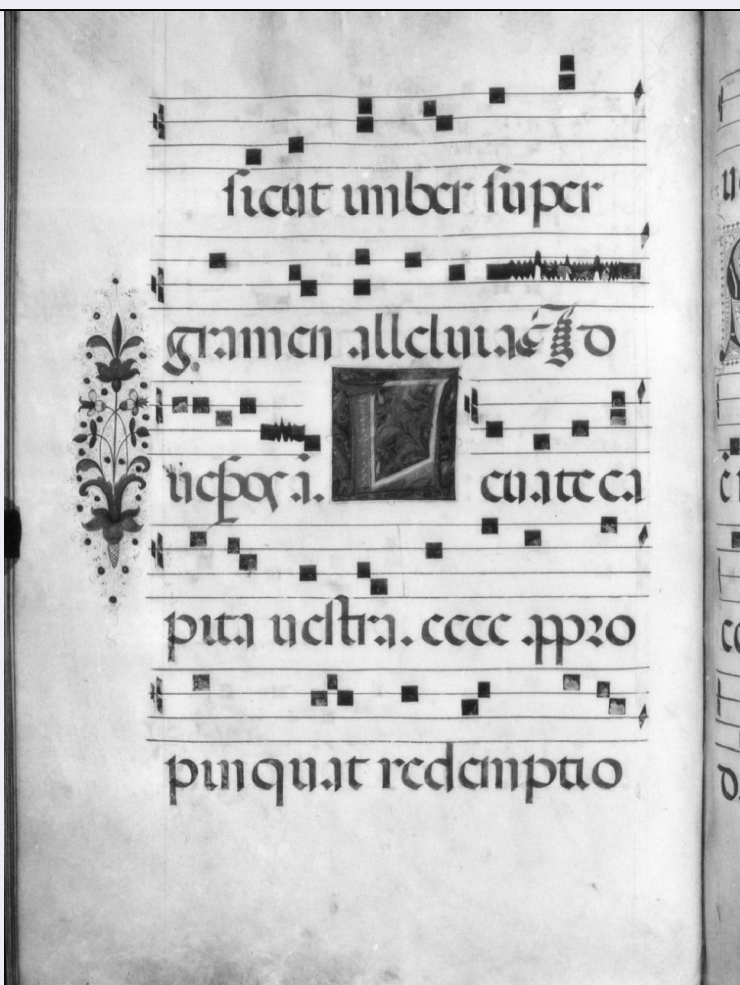 sicut imber super
gramen alleluia. ē D
ne spoſ. ā. Leuate ca
pita uestra. ecce appro
pinquat redemptio